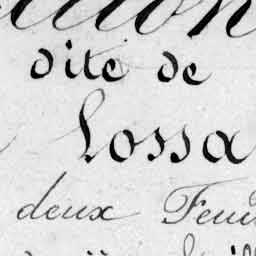 dite de
Lossa
deux Feui